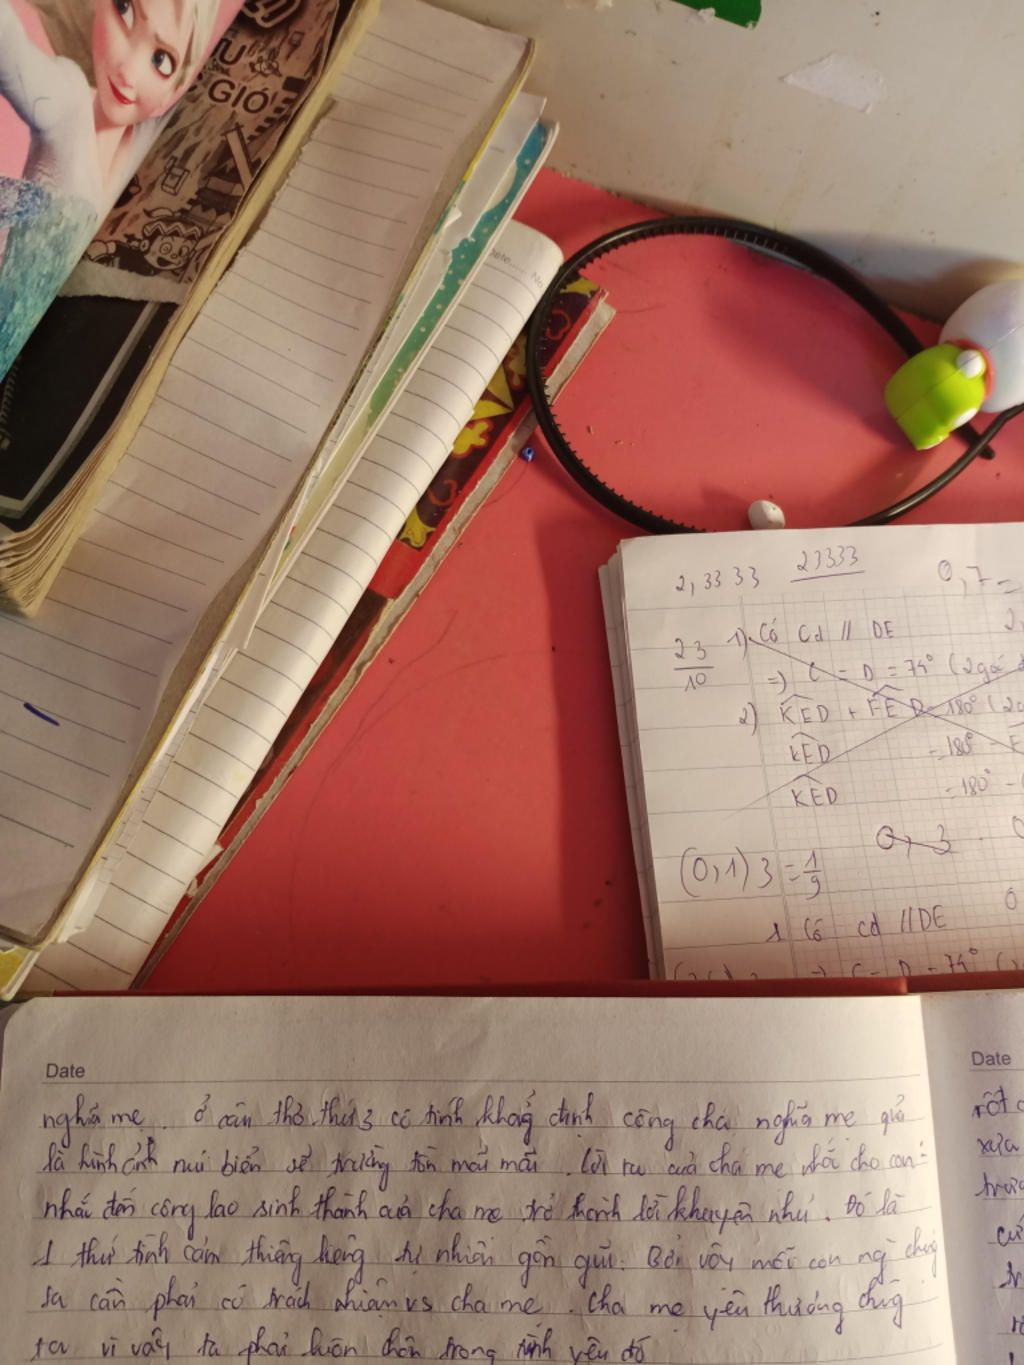 GIÓ
No
2,3333 23333 0,7=
23/10
1) Có Cd // DE
=) C = D = 74° (2 góc
2) KED + FED = 180° (2
KED = 180° -
KED = 180° -
0,3
(0,1)3 = 1/9
1 Có cd // DE
=) C = D = 74°
Date
nghĩa mẹ. Ở câu thơ thứ 3 có tính khẳng định công cha nghĩa mẹ qua
là hình ảnh núi biển sẽ trường tồn mãi mãi. Lời ru của cha mẹ nhắc cho con
nhắc đến công lao sinh thành của cha mẹ trở thành lời khuyên nhủ. Đó là
1 thứ tình cảm thiêng liêng tự nhiên gần gũi. Bởi vậy mỗi con ng chúng
ta cần phải có trách nhiệm vs cha mẹ. Cha mẹ yêu thương chúng
ta vì vậy ta phải luôn chân trọng tình yêu đó
Date
xưa